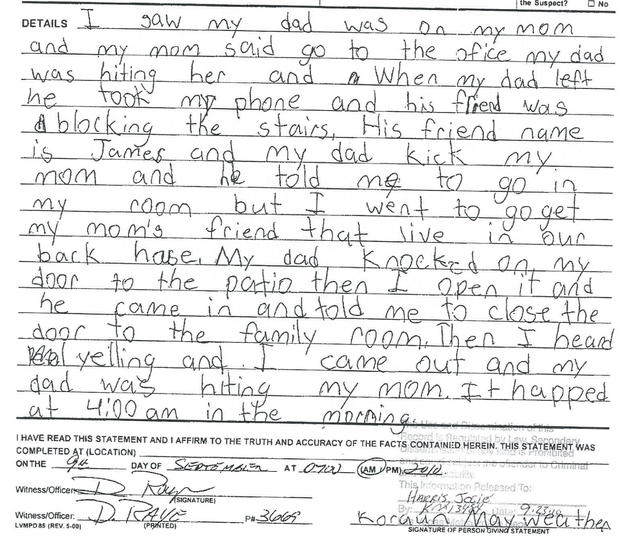 the Suspect? ☐ No
DETAILS I saw my dad was on my mom
and my mom said go to the ofice my dad
was hiting her and When my dad left
he took my phone and his friend was
blocking the stairs. His friend name
is James and my dad kick my
mom and he told me to go in
my room but I went to go get
my mom's friend that live in our
back hase. My dad knocked on my
door to the patio then I open it and
he came in and told me to close the
door to the family room. Then I heard
yelling and I came out and my
dad was hiting my mom. It happed
at 4:00 am in the morning.
I HAVE READ THIS STATEMENT AND I AFFIRM TO THE TRUTH AND ACCURACY OF THE FACTS CONTAINED HEREIN. THIS STATEMENT WAS
COMPLETED AT (LOCATION)
ON THE DAY OF SEPTEMBER AT 0700 (AM / PM), 2010.
This Information Released To:
Witness/Officer: (SIGNATURE)
HARRIS, JOSIE
By: Date:
Witness/Officer: D. RAVE P# 3669 Koraun Mayweather
LVMPD 85 (REV. 5-00) (PRINTED) SIGNATURE OF PERSON GIVING STATEMENT